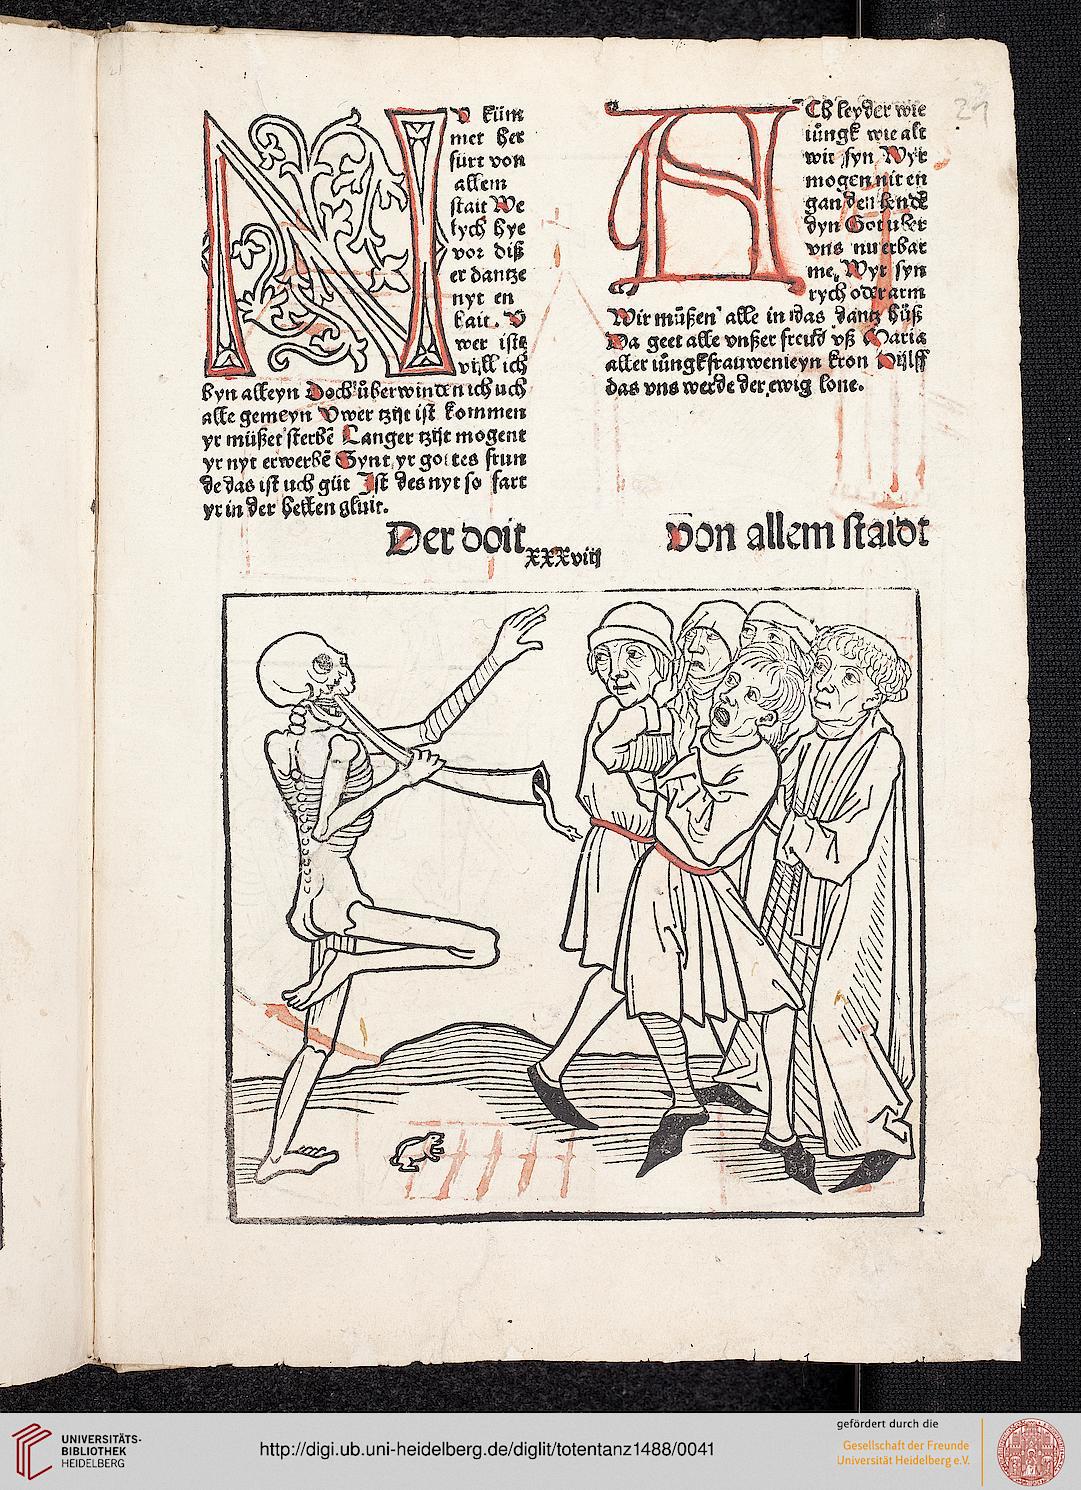 NV küm
met her
fürt von
allem
stait We
lych hye
vor diß
er dantze
nyt en
kait. V
wer istz
vijll ich
byn alleyn Doch überwinden ich uch
alle gemeyn Vwer tzijt ist kommen
yr müßet sterbē Langer tzijt mogent
yr nyt erwerbē Synt yr gottes frun
de das ist uch güt Ist des nyt so fart
yr in der hellen gluit.
ACh leyder wie
iüngk wie alt
wir syn Wyr
mogen nit en
gan den henden
dyn Got uber
vns nu erbar
me, Wyr syn
rych oder arm
Wir müßen alle in das dantz hüß
Da geet alle vnßer freud vß Maria
aller iüngkfrauwen eyn kron Hijlff
das vns werde der ewig lone.
Der doit
xxxviij
Von allem staidt
21
UNIVERSITÄTS-
BIBLIOTHEK
HEIDELBERG
http://digi.ub.uni-heidelberg.de/diglit/totentanz1488/0041
gefördert durch die
Gesellschaft der Freunde
Universität Heidelberg e.V.